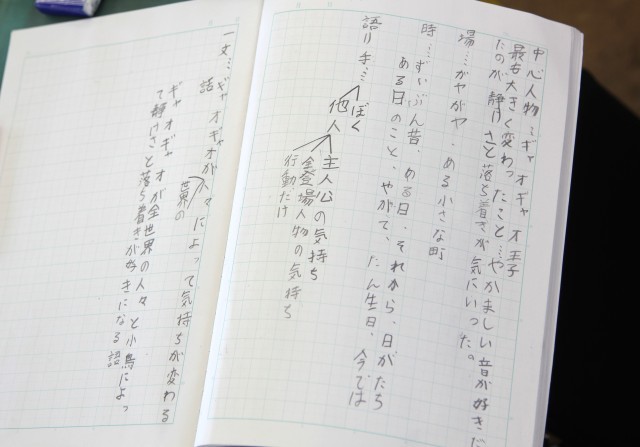 中心人物…ギャオギャオ王子
最も大きく変わったこと…やかましい音が好きだ
たのが静けさと落ち着きが気にいった。
場…ガヤガヤ、ある小さな町
時…ずいぶん昔、ある日、それから、日がたち
ある日のこと、やがて、たん生日、今では
語り手…ぼく
他人
主人公の気持ち
全登場人物の気持ち
行動だけ
一文…ギャオギャオが によって気持ちが変わる
話
世界の
ギャオギャオが全世界の人々と小鳥によっ
て静けさと落ち着きが好きになる語